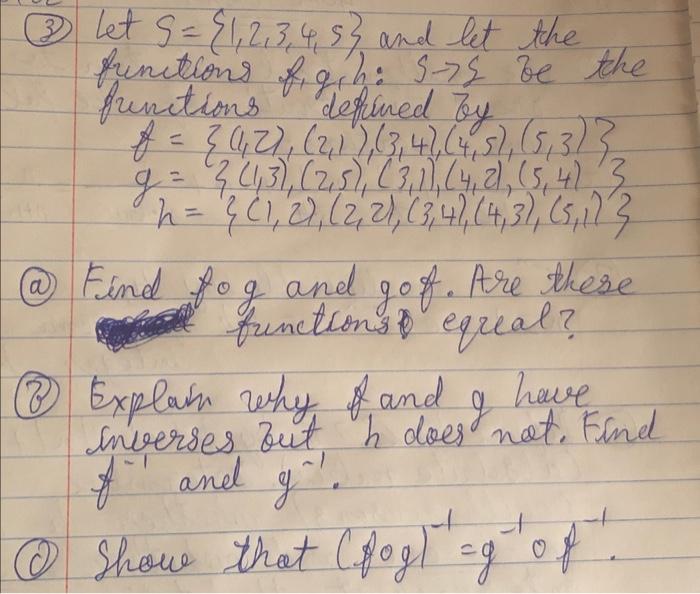 ③ Let S = {1,2,3,4,5} and let the
functions f,g,h: S→S be the
functions defined by
f = {(1,2),(2,1),(3,4),(4,5),(5,3)}
g = {(1,3),(2,5),(3,1),(4,2),(5,4)}
h = {(1,2),(2,2),(3,4),(4,3),(5,1)}
ⓐ Find fog and gof. Are these
functions equal?
ⓑ Explain why f and g have
inverses but h does not. Find
f⁻¹ and g⁻¹.
ⓒ Show that (fog)⁻¹ = g⁻¹ o f⁻¹.